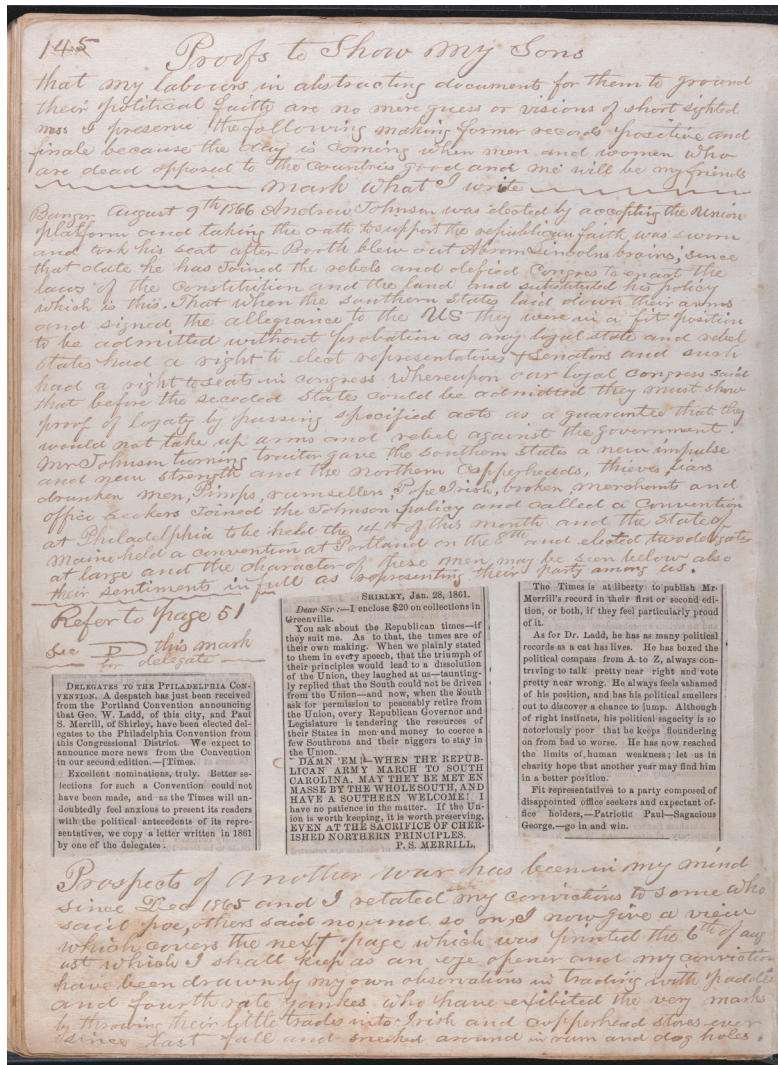 145
Proofs to Show My Sons
that my labours in abstracting documents for them to ground
their political faith are no mere guess or visions of short sighted
mess I preserve the following making former records positive and
finale because the day is coming when men and women who
are dead opposed to the countries good and me will be my friends
mark what I write
Bangor August 9th 1866 Andrew Johnson was elected by accepting the Union
platform and taking the oath to support the republican faith was sworn
and took his seat after Booth blew out Abram Lincolns brains; since
that date he has Joined the rebels and defied Congres to enact the
laws of the Constitution and the land and substituted his policy
which is this. That when the southern States laid down their arms
and signed the allegiance to the US they were in a fit position
to be admitted without probation as any loyal state and rebel
States had a right to elect representatives & Senators and such
had a right to seats in congress whereupon our loyal Congress said
that before the seceded States could be admitted they must show
proof of loyaty by passing specified acts as a guarantee that they
would not take up arms and rebel against the government.
Mr Johnson turning traitor gave the Southern States a new impulse
and new strength and the northern Copperheads, thieves, liars
drunken men, Pimps, rumsellers, Pope Irish, broken merchants and
office seekers Joined the Johnson policy and called a Convention
at Philadelphia to be held the 14th of this month and the State of
Maine held a convention at Portland on the 8th and elected two delegates
at large and the character of these men may be seen below also
their sentiments in full as representing their party among us.
Refer to page 51
See D this mark
for delegate
DELEGATES TO THE PHILADELPHIA CON-
VENTION. A despatch has just been received
from the Portland Convention announcing
that Geo. W. Ladd, of this city, and Paul
S. Merrill, of Shirley, have been elected del-
egates to the Philadelphia Convention from
this Congressional District. We expect to
announce more news from the Convention
in our second edition.—[Times.
Excellent nominations, truly. Better se-
lections for such a Convention could not
have been made, and as the Times will un-
doubtedly feel anxious to present its readers
with the political antecedents of its repre-
sentatives, we copy a letter written in 1861
by one of the delegates:
SHIRLEY, Jan. 28, 1861.
Dear Sir:—I enclose $20 on collections in
Greenville.
You ask about the Republican times—if
they suit me. As to that, the times are of
their own making. When we plainly stated
to them in every speech, that the triumph of
their principles would lead to a dissolution
of the Union, they laughed at us—taunting-
ly replied that the South could not be driven
from the Union—and now, when the South
ask for permission to peaceably retire from
the Union, every Republican Governor and
Legislature is tendering the resources of
their States in men and money to coerce a
few Southrons and their niggers to stay in
the Union.
DAMN 'EM!—WHEN THE REPUB-
LICAN ARMY MARCH TO SOUTH
CAROLINA, MAY THEY BE MET EN
MASSE BY THE WHOLE SOUTH, AND
HAVE A SOUTHERN WELCOME! I
have no patience in the matter. If the Un-
ion is worth keeping, it is worth preserving,
EVEN AT THE SACRIFICE OF CHER-
ISHED NORTHERN PRINCIPLES.
P. S. MERRILL.
The Times is at liberty to publish Mr.
Merrill's record in their first or second edi-
tion, or both, if they feel particularly proud
of it.
As for Dr. Ladd, he has as many political
records as a cat has lives. He has boxed the
political compass from A to Z, always con-
triving to talk pretty near right and vote
pretty near wrong. He always feels ashamed
of his position, and has his political smellers
out to discover a chance to jump. Although
of right instincts, his political sagacity is so
notoriously poor that he keeps floundering
on from bad to worse. He has now reached
the limits of human weakness; let us in
charity hope that another year may find him
in a better position.
Fit representatives to a party composed of
disappointed office seekers and expectant of-
fice holders,—Patriotic Paul—Sagacious
George,—go in and win.
Prospects of Another war has been in my mind
since Dec 1865 and I related my convictions to some who
said poe, others said no, and so on, I now give a view
which covers the next page which was printed the 6th of aug
ust which I shall keep as an eye opener and my conviction
have been drawn by my own observations in trading with
and fourth rate yankes who have exibited the very marks
by throwing their little trades into Irish and copperhead stores ever
since last fall and sneaked around in rum and dog holes.